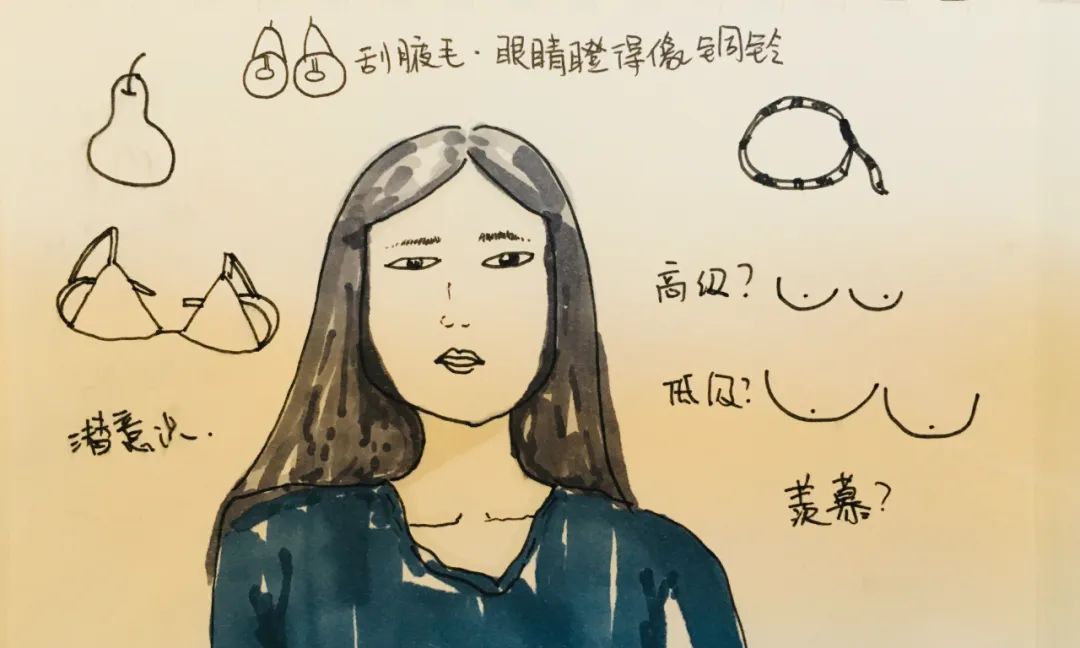 刮腋毛·眼睛瞪得像铜铃
高级?
低级?
潜意识.
羡慕?